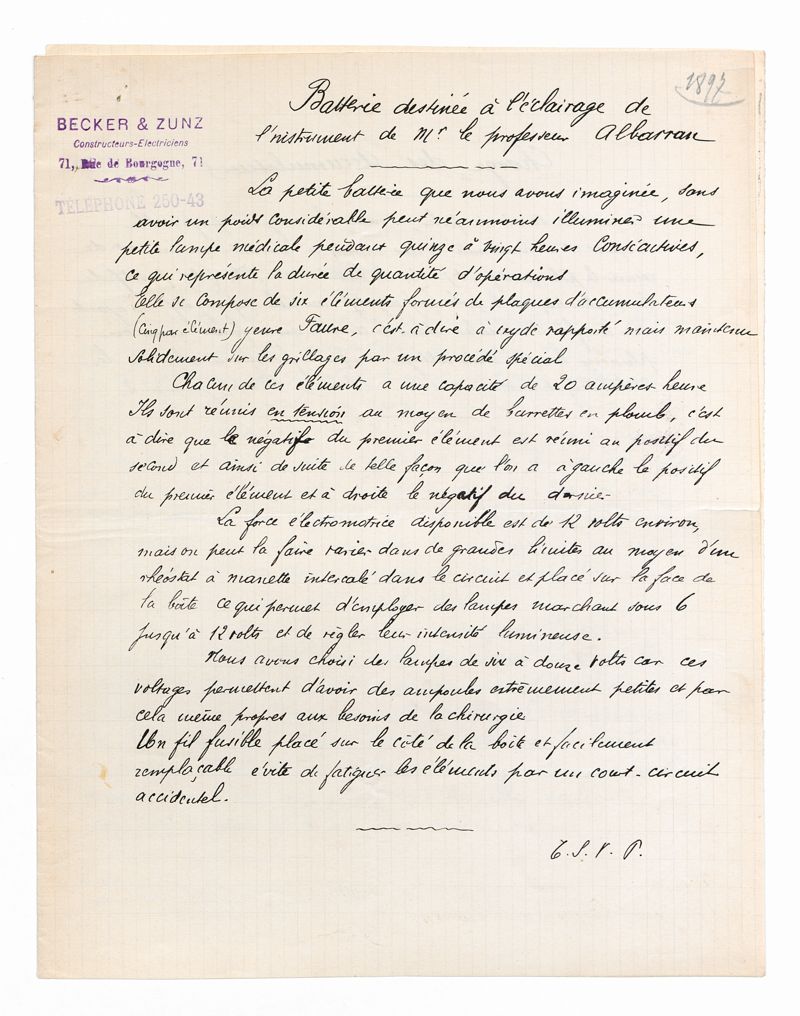 1897
BECKER & ZUNZ
Constructeurs-Electriciens
71, Rue de Bourgogne, 71
TÉLÉPHONE 250-43
Batterie destinée à l'éclairage de
l'instrument de Mr le professeur Albarran
La petite batterie que nous avons imaginée, sans
avoir un poids considérable peut néanmoins illuminer une
petite lampe médicale pendant quinze à vingt heures consécutives,
ce qui représente la durée de quantité d'opérations
Elle se compose de six éléments formés de plaques d'accumulateurs
(cinq par élément) genre Faure, c'est à dire à oxyde rapporté mais maintenu
solidement sur les grillages par un procédé spécial
Chacun de ces éléments a une capacité de 20 ampères heure
Ils sont réunis en tension au moyen de barrettes en plomb, c'est
à dire que le négatif du premier élément est réuni au positif du
second et ainsi de suite de telle façon que l'on a à gauche le positif
du premier élément et à droite le négatif du dernier
La force électromotrice disponible est de 12 volts environ,
mais on peut la faire varier dans de grandes limites au moyen d'un
rhéostat à manette intercalé dans le circuit et placé sur la face de
la boîte ce qui permet d'employer des lampes marchant sous 6
jusqu'à 12 volts et de régler leur intensité lumineuse.
Nous avons choisi des lampes de six à douze volts car ces
voltages permettent d'avoir des ampoules extrêmement petites et par
cela même propres aux besoins de la chirurgie
Un fil fusible placé sur le côté de la boîte et facilement
remplaçable évite de fatiguer les éléments par un court-circuit
accidentel.
T. S. V. P.